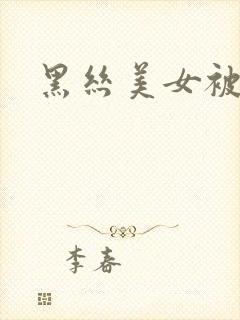 黑丝美女被
李春